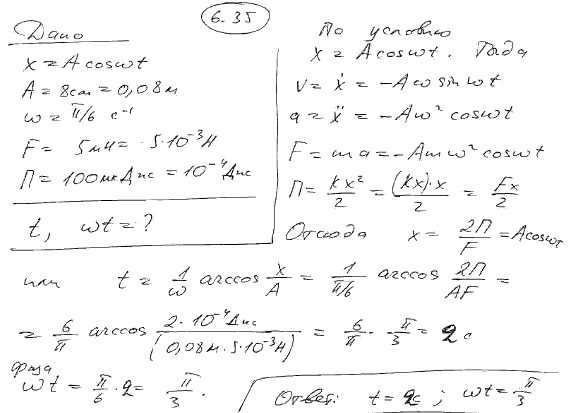 6.35
Дано
x = A cos ωt
A = 8см = 0,08м
ω = π/6 с⁻¹
F = 5мН = 5·10⁻³Н
П = 100мкДж = 10⁻⁴Дж
t, ωt = ?
По условию
x = A cos ωt. Тогда
v = ẋ = -Aω sin ωt
a = ẍ = -Aω² cos ωt
F = ma = -Amω² cos ωt
П = kx²/2 = (kx)·x/2 = Fx/2
Отсюда x = 2П/F = A cos ωt
или t = 1/ω arccos x/A = 1/(π/6) arccos 2П/AF =
= 6/π arccos 2·10⁻⁴Дж/(0,08м·5·10⁻³Н) = 6/π · π/3 = 2 с
фаза
ωt = π/6 · 2 = π/3.
Ответ: t = 2с; ωt = π/3